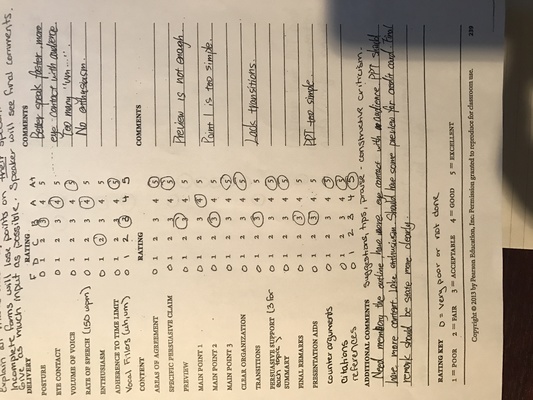 Incomplete forms will lose points on their speech.
Give as much input as possible. Speaker will see final comments.
DELIVERY RATING COMMENTS
F D C B A A+
POSTURE 0 1 2 3 4 5 Better speak faster more
EYE CONTACT 0 1 2 3 4 5 eye contact with audience.
VOLUME OF VOICE 0 1 2 3 4 5 Too many "um..."
RATE OF SPEECH (150 wpm) 0 1 2 3 4 5 No enthusiasm
ENTHUSIASM 0 1 2 3 4 5
ADHERENCE TO TIME LIMIT 0 1 2 3 4 5
Vocal Fillers (uh, um) 0 1 2 3 4 5
CONTENT RATING COMMENTS
AREAS OF AGREEMENT 0 1 2 3 4 5
SPECIFIC PERSUASIVE CLAIM 0 1 2 3 4 5
PREVIEW 0 1 2 3 4 5 Preview is not enough
MAIN POINT 1 0 1 2 3 4 5
MAIN POINT 2 0 1 2 3 4 5 Point 1 is too simple.
MAIN POINT 3 0 1 2 3 4 5
CLEAR ORGANIZATION 0 1 2 3 4 5
TRANSITIONS 0 1 2 3 4 5 Lack transitions
PERSUASIVE SUPPORT (3 for each topic) 0 1 2 3 4 5
SUMMARY 0 1 2 3 4 5
FINAL REMARKS 0 1 2 3 4 5
PRESENTATION AIDS 0 1 2 3 4 5 PPT too simple
counter arguments 0 1 2 3 4 5
Citations 0 1 2 3 4 5
references 0 1 2 3 4 5
ADDITIONAL COMMENTS Suggestions, tips, provide constructive criticism.
Need memorizing the outline, have more eye contact with audience. PPT should
have more content. Lake enthusiasm. Should have some preview for credit card. Final
remark should be more clearly.
RATING KEY 0 = very poor or not done
1 = POOR 2 = FAIR 3 = ACCEPTABLE 4 = GOOD 5 = EXCELLENT
Copyright © 2013 by Pearson Education, Inc. Permission granted to reproduce for classroom use.